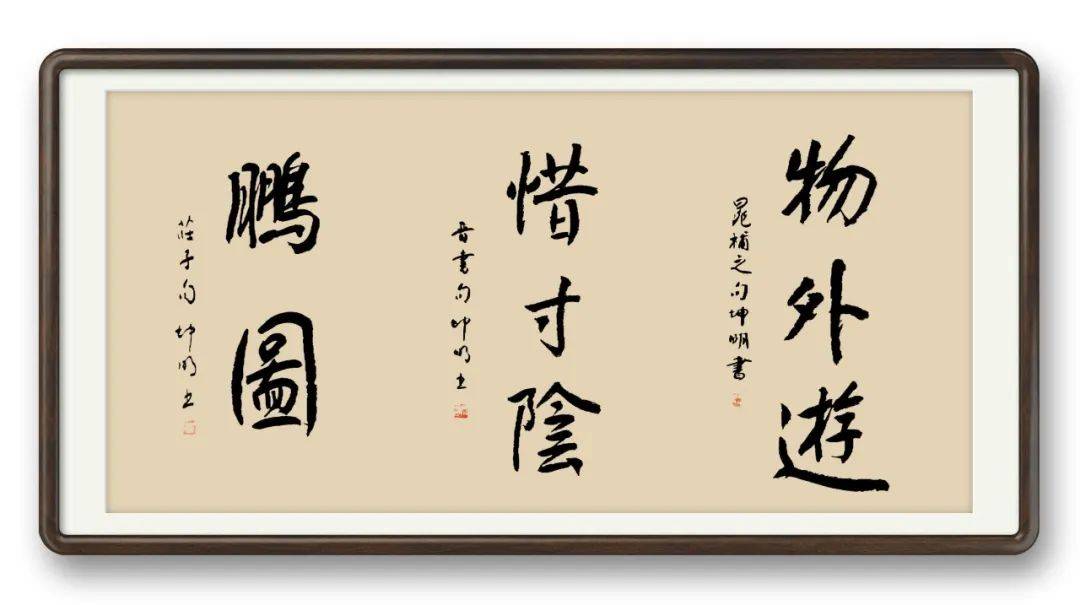 物外遊
晁補之句坤明書
惜寸陰
晉書句坤明书
鵬圖
莊子句坤明书